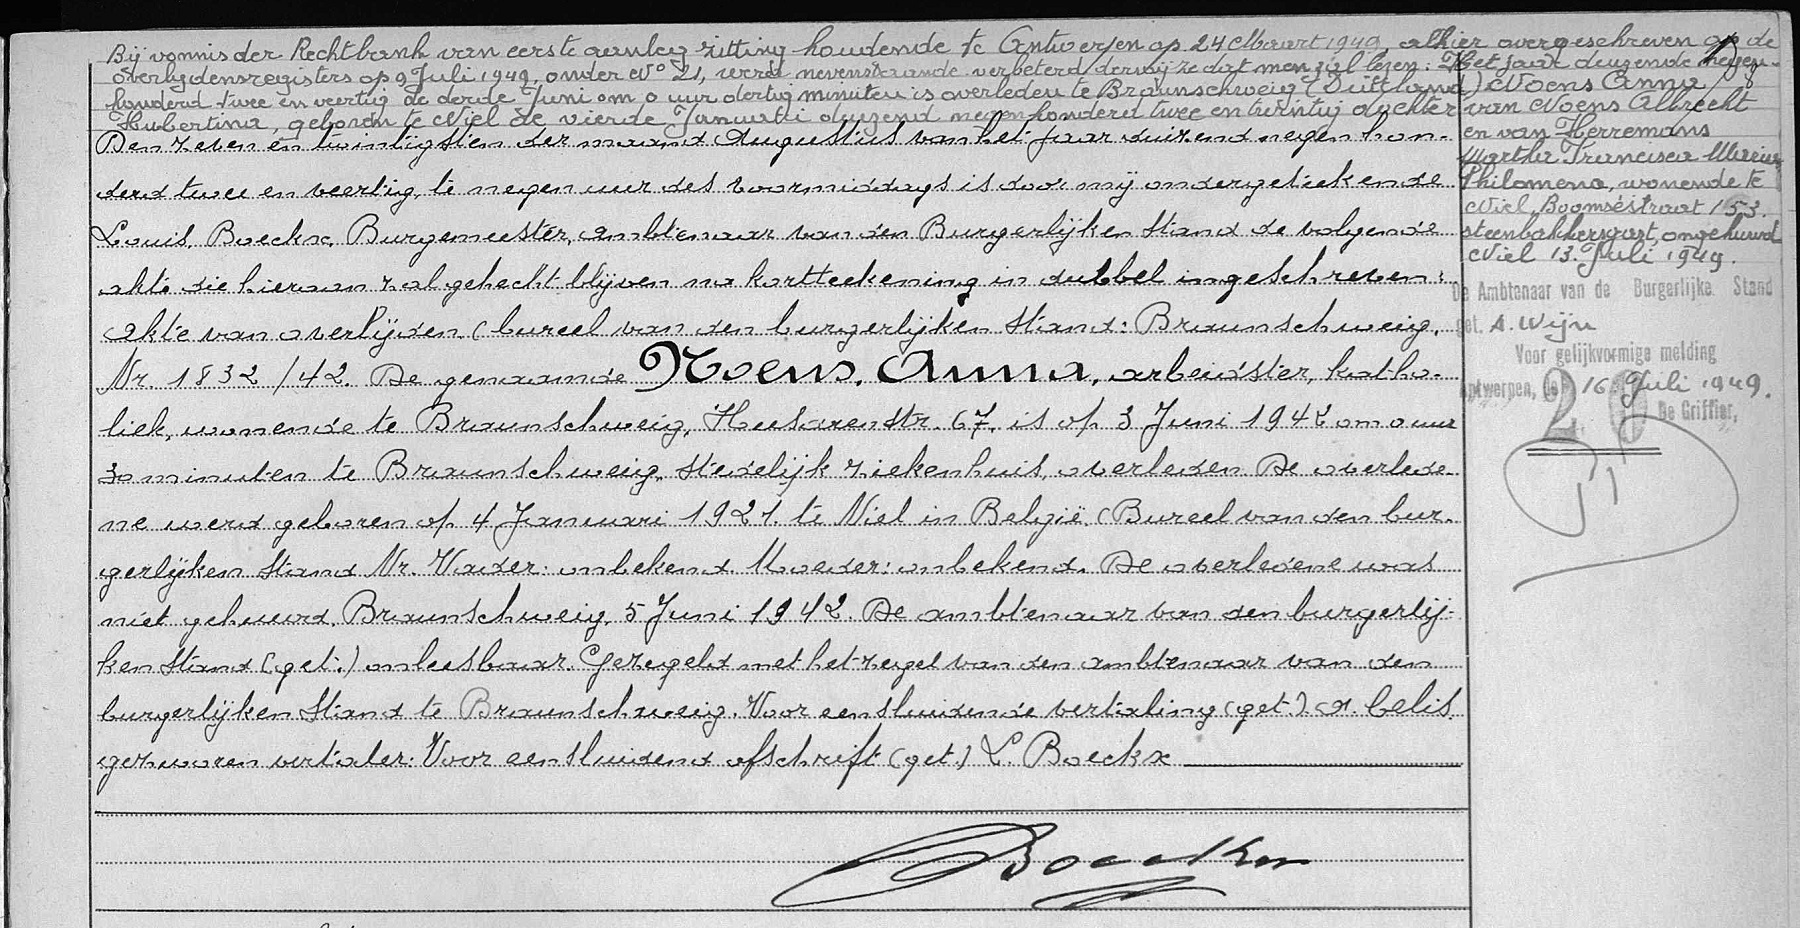 Bij vonnis der Rechtbank van eerste aanleg zitting houdende te Antwerpen op 24 Maart 1949, alhier overgeschreven op de
overlijdensregisters op 9 Juli 1949, onder No 21, werd nevenstaande verbeterd derwijze dat men zal lezen: Het jaar duizend negen-
honderd twee en veertig de derde Juni om 0 uur dertig minuten is overleden te Braunschweig (Duitsland) Noens Anna
Hubertina, geboren te Niel de vierde Januari duizend negenhonderd twee en twintig dochter van Noens Albrecht
en van Herremans
Martha Francisca Maria
Philomena, wonende te
Niel, Boomsestraat 153.
steenbakkersgast, ongehuwd
Niel 13 Juli 1949.
De Ambtenaar van de Burgerlijke Stand
get. A. Wijn
Voor gelijkvormige melding
Antwerpen, de 16 Juli 1949.
De Griffier,
20
Den zeven en twintigsten der maand Augustus van het jaar duizend negen hon-
derd twee en veertig, te negen uur des voormiddags is door mij ondergeteekende
Louis Boeckx, Burgemeester, ambtenaar van den Burgerlijken Stand de volgende
akte die hieraan zal gehecht blijven na kortteekening in dubbel ingeschreven:
akte van overlijden (bureel van den burgerlijken Stand: Braunschweig,
Nr 1832/42. De genaamde Noens, Anna, arbeidster, katho-
liek, wonende te Braunschweig, Husarenstr. 67, is op 3 Juni 1942 om 0 uur
30 minuten te Braunschweig, stedelijk ziekenhuis, overleden De overlede-
ne werd geboren op 4 Januari 1921. te Niel in België. (Bureel van den bur-
gerlijken Stand Nr. Vader: onbekend. Moeder: onbekend. De overledene was
niet gehuwd. Braunschweig, 5 Juni 1942. De ambtenaar van den burgerlij-
ken Stand (get.) onleesbaar. Gezegeld met het zegel van den ambtenaar van den
burgerlijken Stand te Braunschweig. Voor eensluidende vertaling (get.) A. Celis
gezworen vertaler: Voor eensluidend afschrift (get.) L. Boeckx
Boeckx